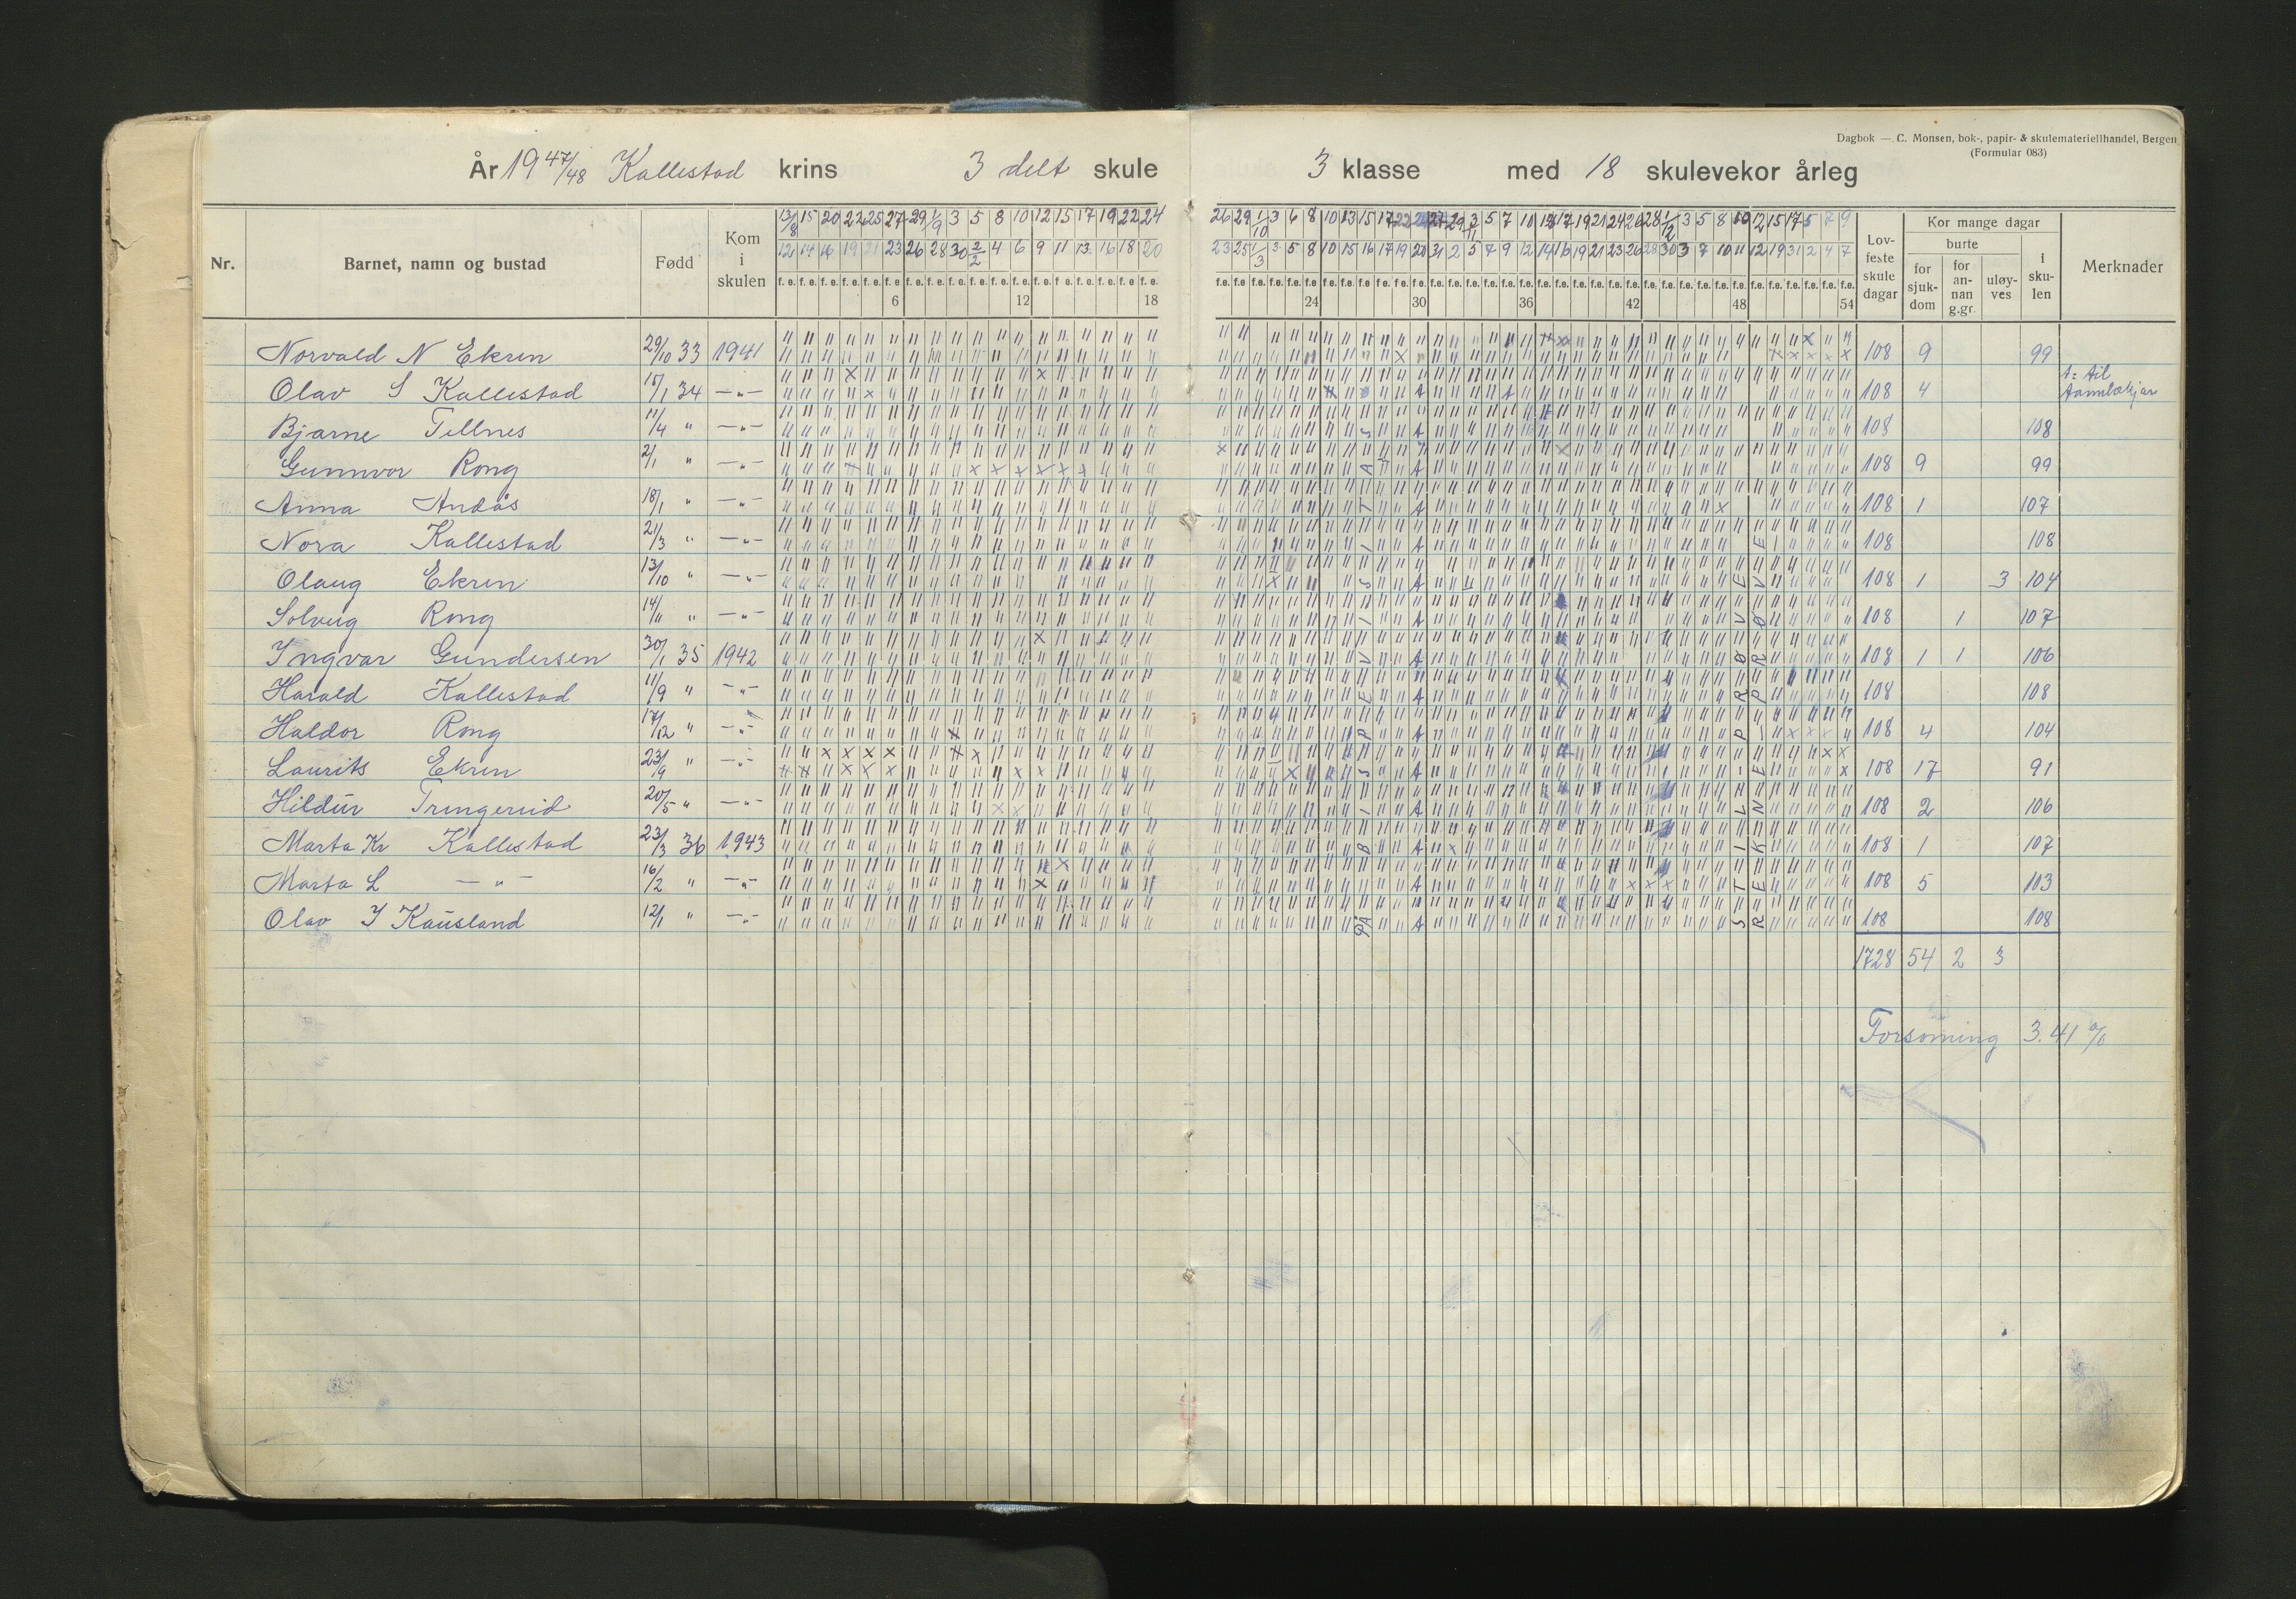 Dagbok — C. Monsen, bok-, papir- & skulemateriellhandel, Bergen
(Formular 083)
År 1947/48 Kallestad krins 3 delt skule 3 klasse med 18 skulevekor årleg
Nr. Barnet, namn og bustad Født Kom i skulen Lovfeste skule dagar Kor mange dagar burte for sjukdom for annan g.gr. uløyves i skulen Merknader
13/8 15 20 22 25 27 29 1/9 3 5 8 10 12 15 17 19 22 24 26 29 1/10 3 6 8 10 13 15 17 22 29 3/11 5 7 10 17 19 21 24 26 28 1/12 3 5 8 10 12 15 17 5 7 9
12 14 16 19 21 23 26 28 30 2/2 4 6 9 11 13 16 18 20 23 25 1/3 3 5 8 10 15 16 17 19 20 31 2 5 7 9 12 14 16 19 21 23 26 28 30 3 7 10 11 12 19 31 2 4 7
f. e.
6 12 18 24 30 36 42 48 54
Norvald N Ekren 29/10 33 1941 108 9 99
Olav S Kallestad 15/1 34 —„— 108 4 A: til Tannlækjar
Bjarne Tellnes 11/4 „ —„— 108 108
Gunnvor Rong 2/1 „ —„— 108 9 99
Anna Andås 18/1 „ —„— 108 1 107
Nora Kallestad 21/3 „ —„— 108 108
Olaug Ekren 13/10 „ —„— 108 1 3 104
Solveig Rong 14/11 „ —„— 108 1 107
Ingvar Gundersen 30/1 35 1942 108 1 1 106
Harald Kallestad 11/9 „ —„— 108 108
Haldor Rong 17/12 „ —„— 108 4 104
Laurits Ekren 23/9 „ —„— 108 17 91
Hildur Tringereid 20/5 „ —„— 108 2 106
Marta Kr Kallestad 23/3 36 1943 108 1 107
Marta L —„— 16/2 „ —„— 108 5 103
Olav I Kausland 12/1 „ —„— 108 108
PÅ BISPEVISITAS
STIL-PRØVE
REKNE-PRØVE
1728 54 2 3
Forsøming 3.41 %